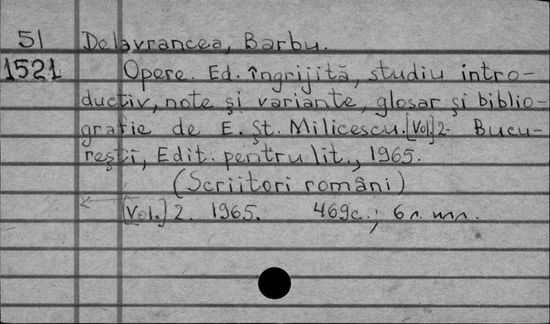 51 Delavrancea, Barbu.
1521 Opere. Ed. îngrijită, studiu intro-
ductiv, note și variante, glosar și biblio-
grafie de E. Șt. Milicescu. [Vol.] 2- Bucu-
rești, Edit. pentru lit., 1965.
(Scriitori români)
[Vol.] 2. 1965. 469c.; 6 л. илл.